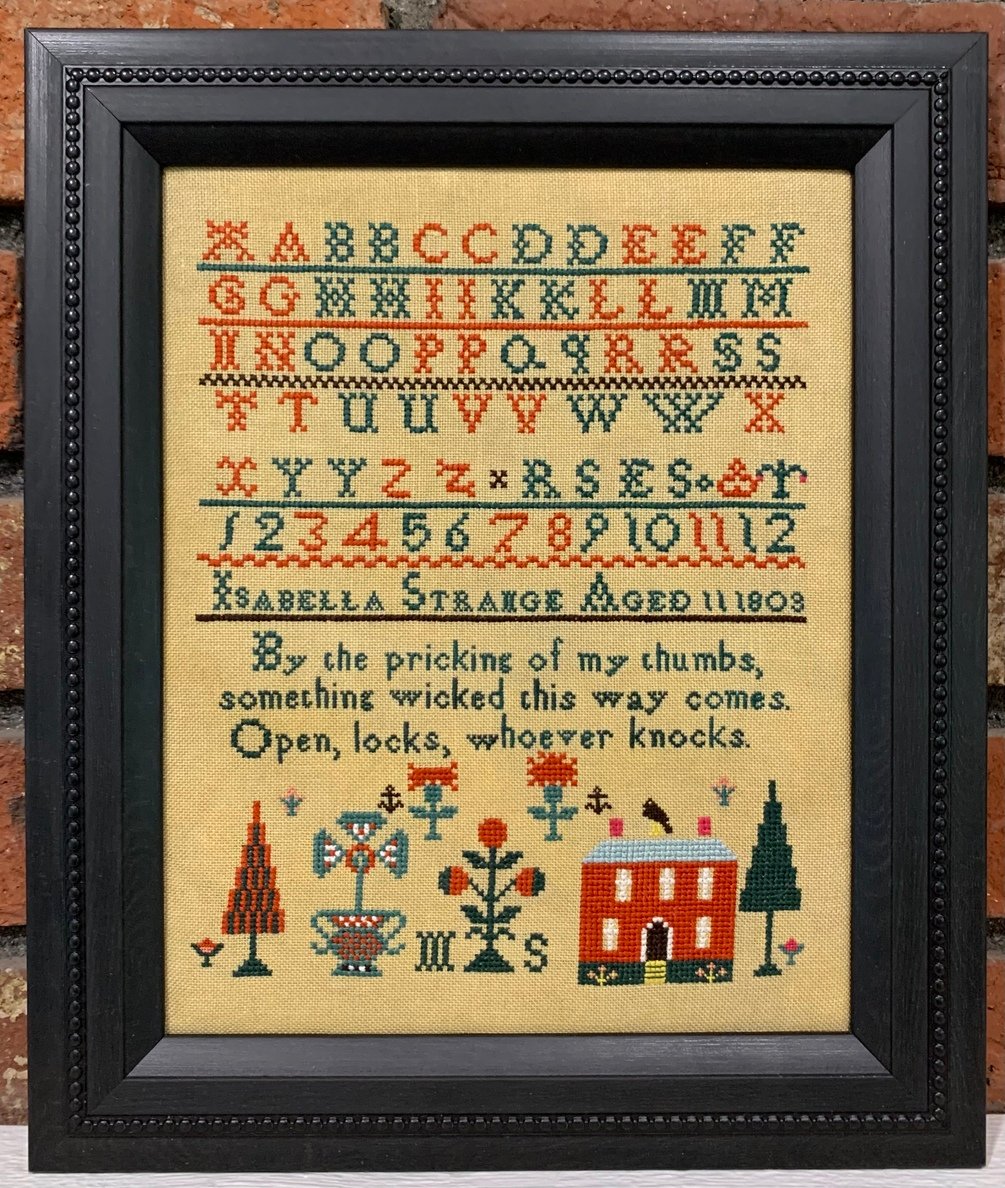 A A B B C C D D E E F F
G G H H I I K K L L M M
N N O O P P Q q R R S S
T T U U V V W W X
X Y Y Z Z x R S E S
1 2 3 4 5 6 7 8 9 10 11 12
ISABELLA STRANGE AGED 11 1803
By the pricking of my thumbs,
something wicked this way comes.
Open, locks, whoever knocks.
M S